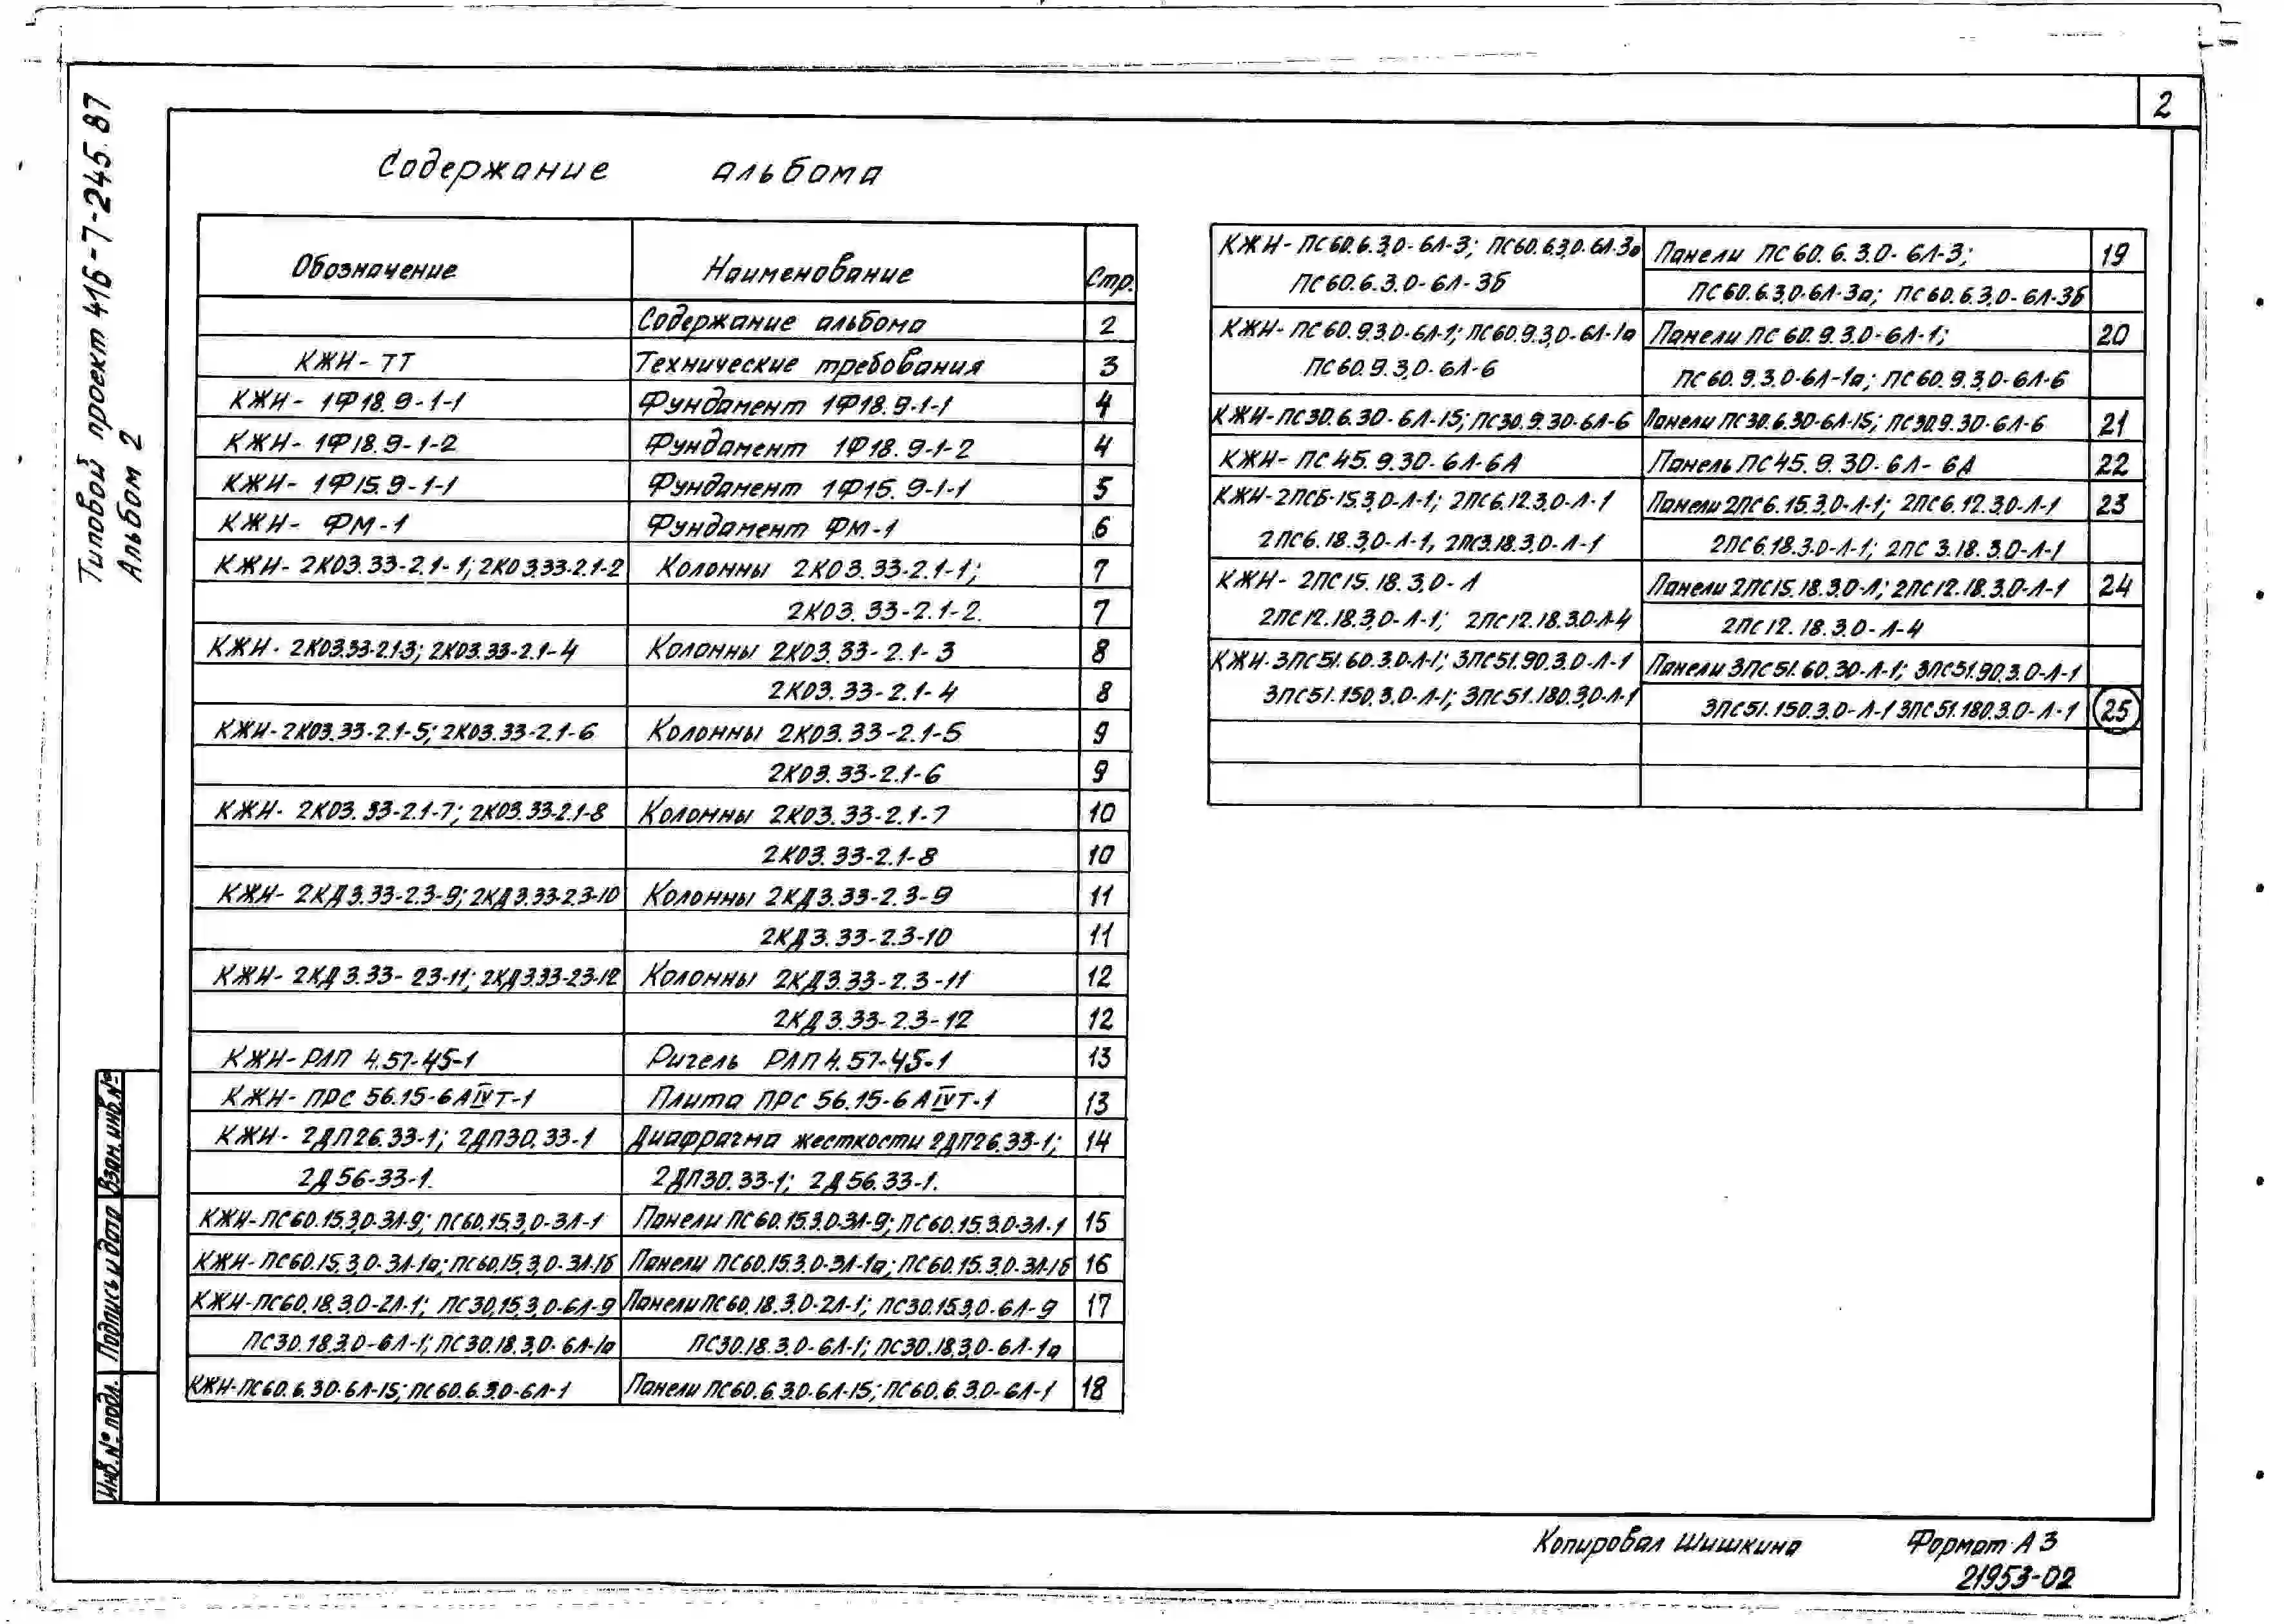 2
Типовой проект 416-7-245.87
Альбом 2
Содержание альбома
Обозначение Наименование Стр.
Содержание альбома 2
КЖИ- ТТ Технические требования 3
КЖИ- 1Ф18.9-1-1 Фундамент 1Ф18.9-1-1 4
КЖИ- 1Ф18.9-1-2 Фундамент 1Ф18.9-1-2 4
КЖИ- 1Ф15.9-1-1 Фундамент 1Ф15.9-1-1 5
КЖИ- ФМ-1 Фундамент ФМ-1 6
КЖИ- 2К03.33-2.1-1; 2К03.33-2.1-2 Колонны 2К03.33-2.1-1; 7
2К03.33-2.1-2. 7
КЖИ- 2К03.33-2.1-3; 2К03.33-2.1-4 Колонны 2К03.33-2.1-3 8
2К03.33-2.1-4 8
КЖИ-2К03.33-2.1-5; 2К03.33-2.1-6 Колонны 2К03.33-2.1-5 9
2К03.33-2.1-6 9
КЖИ- 2К03.33-2.1-7; 2К03.33-2.1-8 Колонны 2К03.33-2.1-7 10
2К03.33-2.1-8 10
КЖИ- 2КД3.33-2.3-9; 2КД3.33-2.3-10 Колонны 2КД3.33-2.3-9 11
2КД3.33-2.3-10 11
КЖИ- 2КД3.33-23-11; 2КД3.33-23-12 Колонны 2КД3.33-2.3-11 12
2КД3.33-2.3-12 12
КЖИ-РЛП 4.57-45-1 Ригель РЛП 4.57-45-1 13
КЖИ- ПРС 56.15-6АIVТ-1 Плита ПРС 56.15-6АIVТ-1 13
КЖИ- 2ДП26.33-1; 2ДП30.33-1 Диафрагма жесткости 2ДП26.33-1; 14
2Д56-33-1. 2ДП30.33-1; 2Д56.33-1.
КЖИ-ПС60.15.3,0-3Л-9; ПС60.15.3,0-3Л-1 Панели ПС60.15.3.0-3Л-9; ПС60.15.3.0-3Л-1 15
КЖИ-ПС60.15.3,0-3Л-1а; ПС60.15.3,0-3Л-1б Панели ПС60.15.3.0-3Л-1а; ПС60.15.3.0-3Л-1б 16
КЖИ-ПС60.18.3,0-2Л-1; ПС30.15.3,0-6Л-9 Панели ПС60.18.3.0-2Л-1; ПС30.15.3,0-6Л-9 17
ПС30.18.3.0-6Л-1; ПС30.18.3,0-6Л-1а ПС30.18.3.0-6Л-1; ПС30.18.3,0-6Л-1а
КЖИ-ПС60.6.30-6Л-15; ПС60.6.3.0-6Л-1 Панели ПС60.6.3.0-6Л-15; ПС60.6.3.0-6Л-1 18
КЖИ-ПС60.6.3,0-6Л-3; ПС60.6.3,0-6Л-3а Панели ПС60.6.3.0-6Л-3; 19
ПС60.6.3.0-6Л-3б ПС60.6.3,0-6Л-3а; ПС60.6.3,0-6Л-3б
КЖИ-ПС60.9.3.0-6Л-1; ПС60.9.3,0-6Л-1а Панели ПС60.9.3.0-6Л-1; 20
ПС60.9.3,0-6Л-6 ПС60.9.3.0-6Л-1а; ПС60.9.3,0-6Л-6
КЖИ-ПС30.6.30-6Л-15; ПС30.9.30-6Л-6 Панели ПС30.6.30-6Л-15; ПС30.9.30-6Л-6 21
КЖИ- ПС.45.9.30-6Л-6А Панель ПС45.9.30-6Л-6А 22
КЖИ-2ПС6-15.3,0-Л-1; 2ПС6.12.3,0-Л-1 Панели 2ПС6.15.3,0-Л-1; 2ПС6.12.3,0-Л-1 23
2ПС6.18.3,0-Л-1, 2ПС3.18.3,0-Л-1 2ПС6.18.3.0-Л-1; 2ПС 3.18.3.0-Л-1
КЖИ- 2ПС15.18.3,0-Л Панели 2ПС15.18.3.0-Л; 2ПС12.18.3.0-Л-1 24
2ПС12.18.3,0-Л-1; 2ПС12.18.3.0-Л-4 2ПС12.18.3.0-Л-4
КЖИ-3ПС51.60.3.0-Л-1; 3ПС51.90.3.0-Л-1 Панели 3ПС51.60.30-Л-1; 3ПС51.90.3.0-Л-1
3ПС51.150.3.0-Л-1; 3ПС51.180.3,0-Л-1 3ПС51.150.3.0-Л-1 3ПС51.180.3.0-Л-1 25
Инв.№ подл. Подпись и дата Взам.инв.№
Копировал Шишкина Формат А3
21953-02